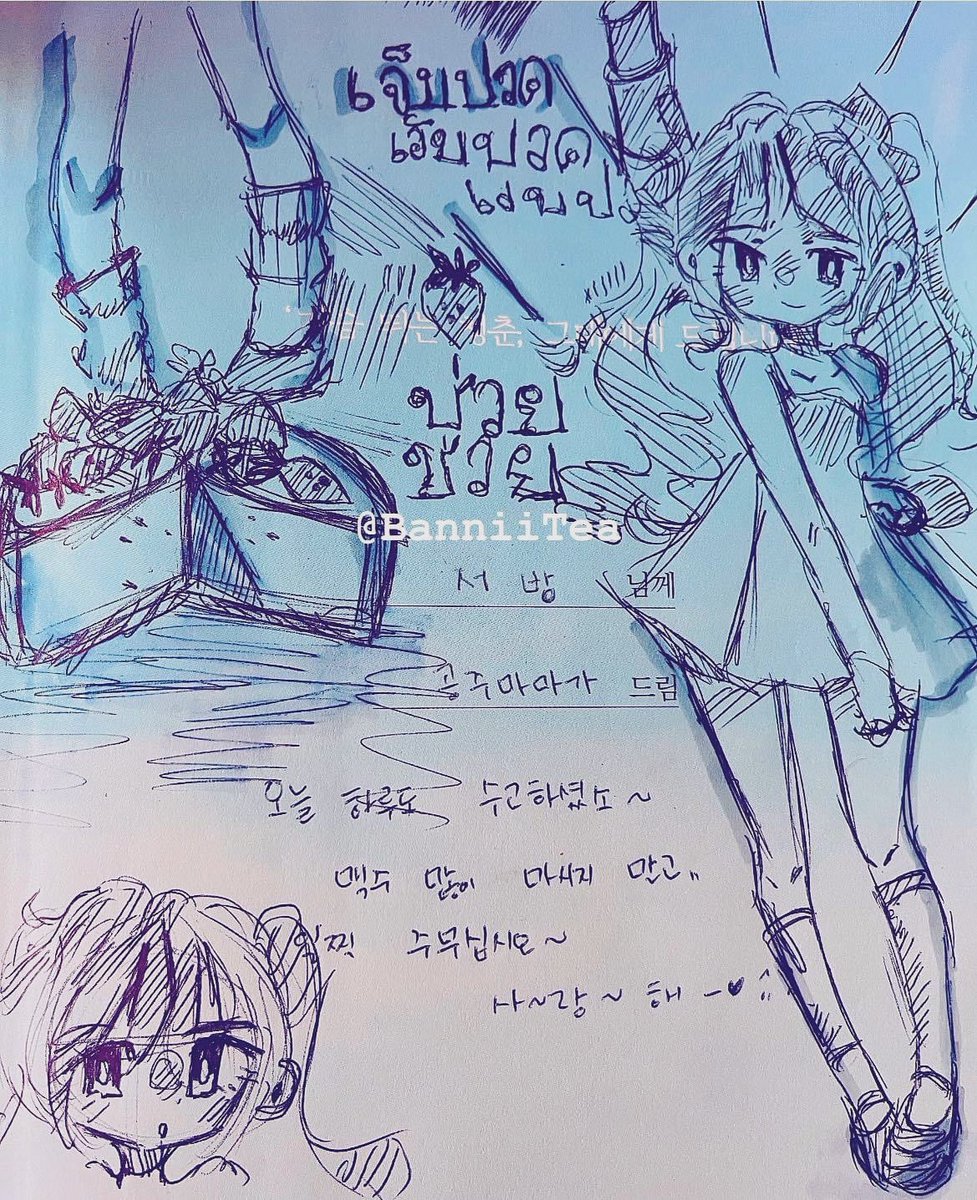 เจ็บปวด
เจ็บปวด
ป่วย
ช่วย
@BanniiTea
서 방 님께
공주마마가 드림
오늘 하루도 수고하셨소~
맥주 많이 마시지 말고..
일찍 주무십시오~
사~랑~해-♥